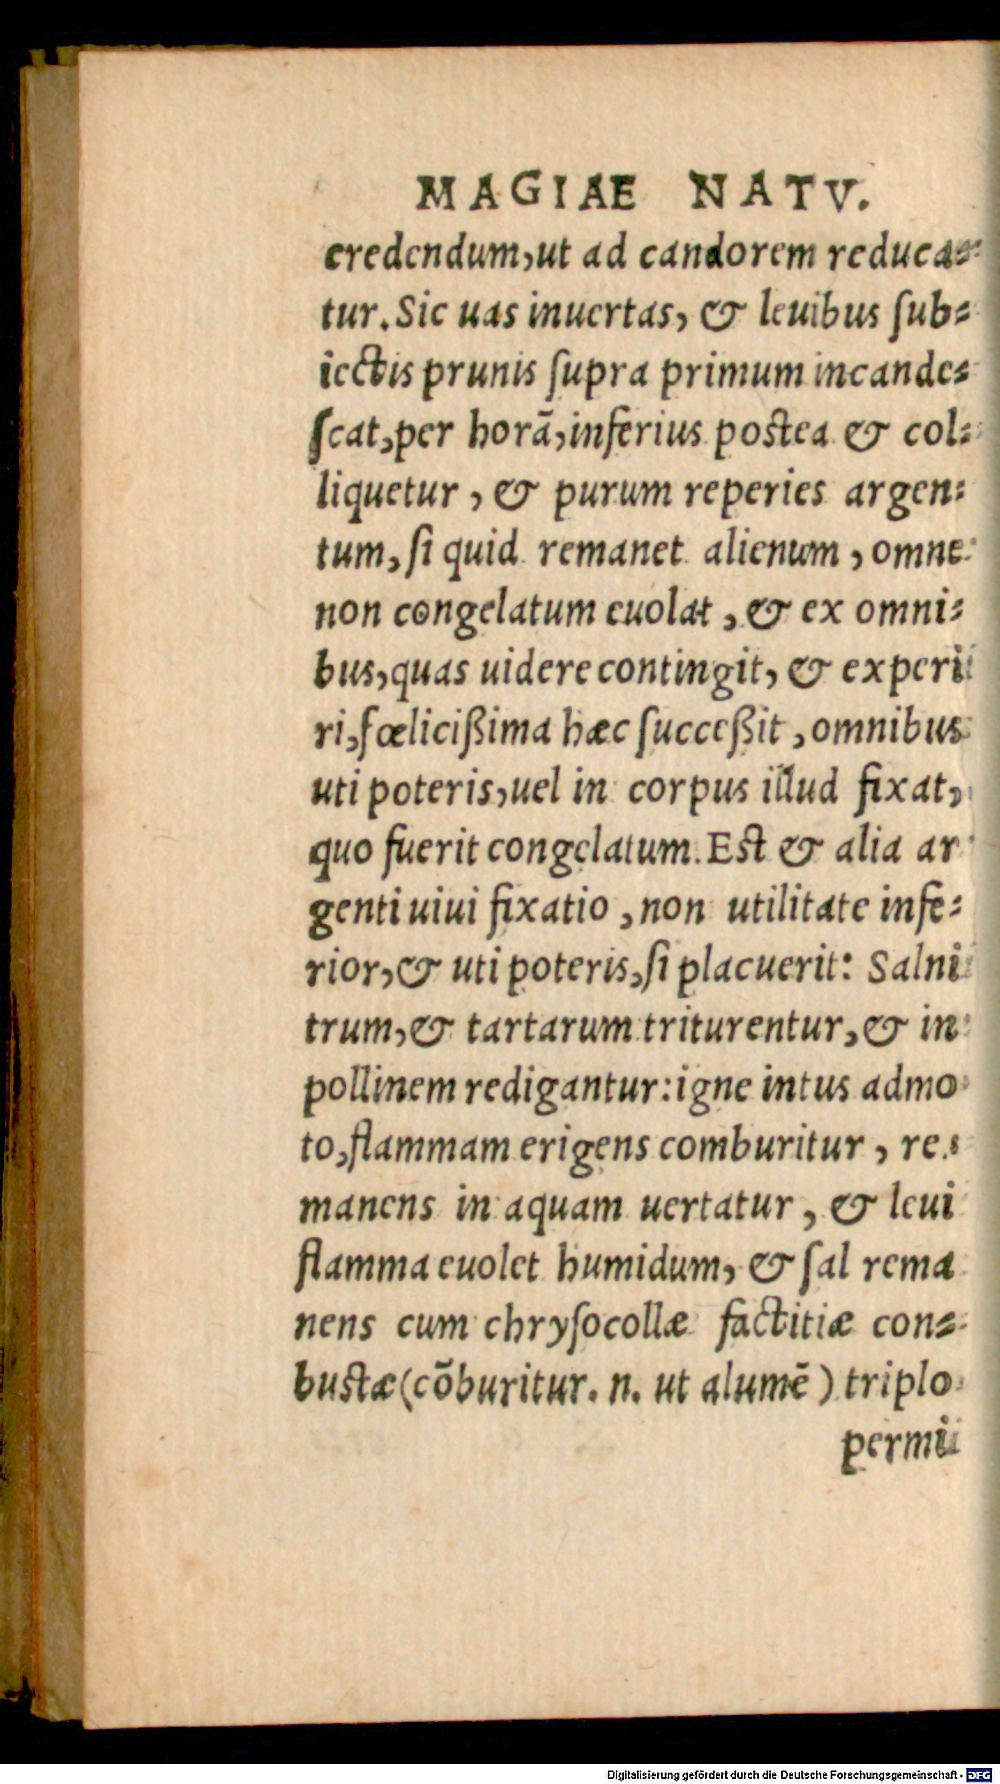 MAGIAE NATV.
credendum, ut ad candorem reduca⸗
tur. Sic uas inuertas, & leuibus ſub⸗
iectis prunis ſupra primum incande⸗
ſcat, per horā, inferius postea & col⸗
liquetur, & purum reperies argen⸗
tum, ſi quid remanet alienum, omne
non congelatum euolat, & ex omni⸗
bus, quas uidere contingit, & experi
ri, fœlicißima hæc ſucceßit, omnibus
uti poteris, uel in corpus illud fixat,
quo fuerit congelatum. Est & alia ar
genti uiui fixatio, non utilitate infe⸗
rior, & uti poteris, ſi placuerit: Salni
trum, & tartarum triturentur, & in
pollinem redigantur: igne intus admo
to, flammam erigens comburitur, re⸗
manens in aquam uertatur, & leui
flamma euolet humidum, & ſal rema
nens cum chryſocollæ factitiæ con⸗
bustæ (cōburitur. n. ut alumē) triplo
permi
Digitalisierung gefördert durch die Deutsche Forschungsgemeinschaft - DFG